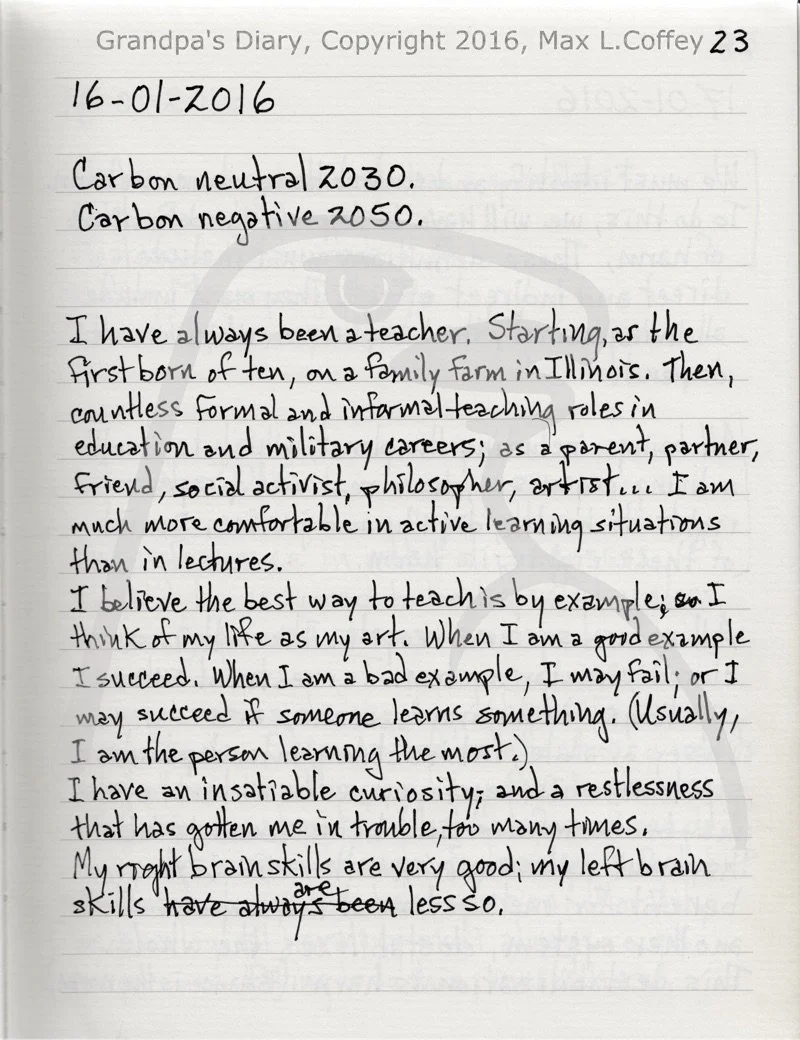 Grandpa's Diary, Copyright 2016, Max L.Coffey 23
16-01-2016
Carbon neutral 2030.
Carbon negative 2050.
I have always been a teacher. Starting, as the
firstborn of ten, on a family farm in Illinois. Then,
countless formal and informal teaching roles in
education and military careers; as a parent, partner,
friend, social activist, philosopher, artist... I am
much more comfortable in active learning situations
than in lectures.
I believe the best way to teach is by example; so I
think of my life as my art. When I am a good example
I succeed. When I am a bad example, I may fail; or I
may succeed if someone learns something. (Usually,
I am the person learning the most.)
I have an insatiable curiosity; and a restlessness
that has gotten me in trouble, too many times.
My right brain skills are very good; my left brain
skills have always been are less so.